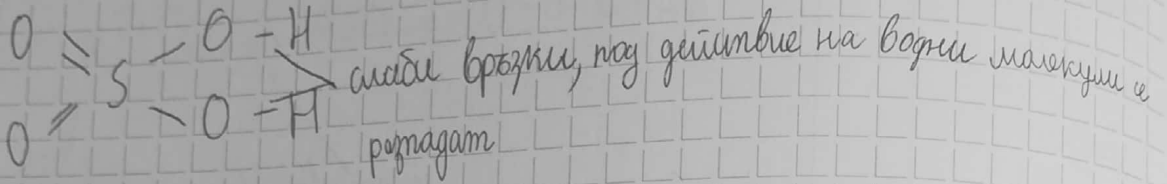 O O – H
S слаби връзки, под действие на водни молекули се
O O – H разпадат